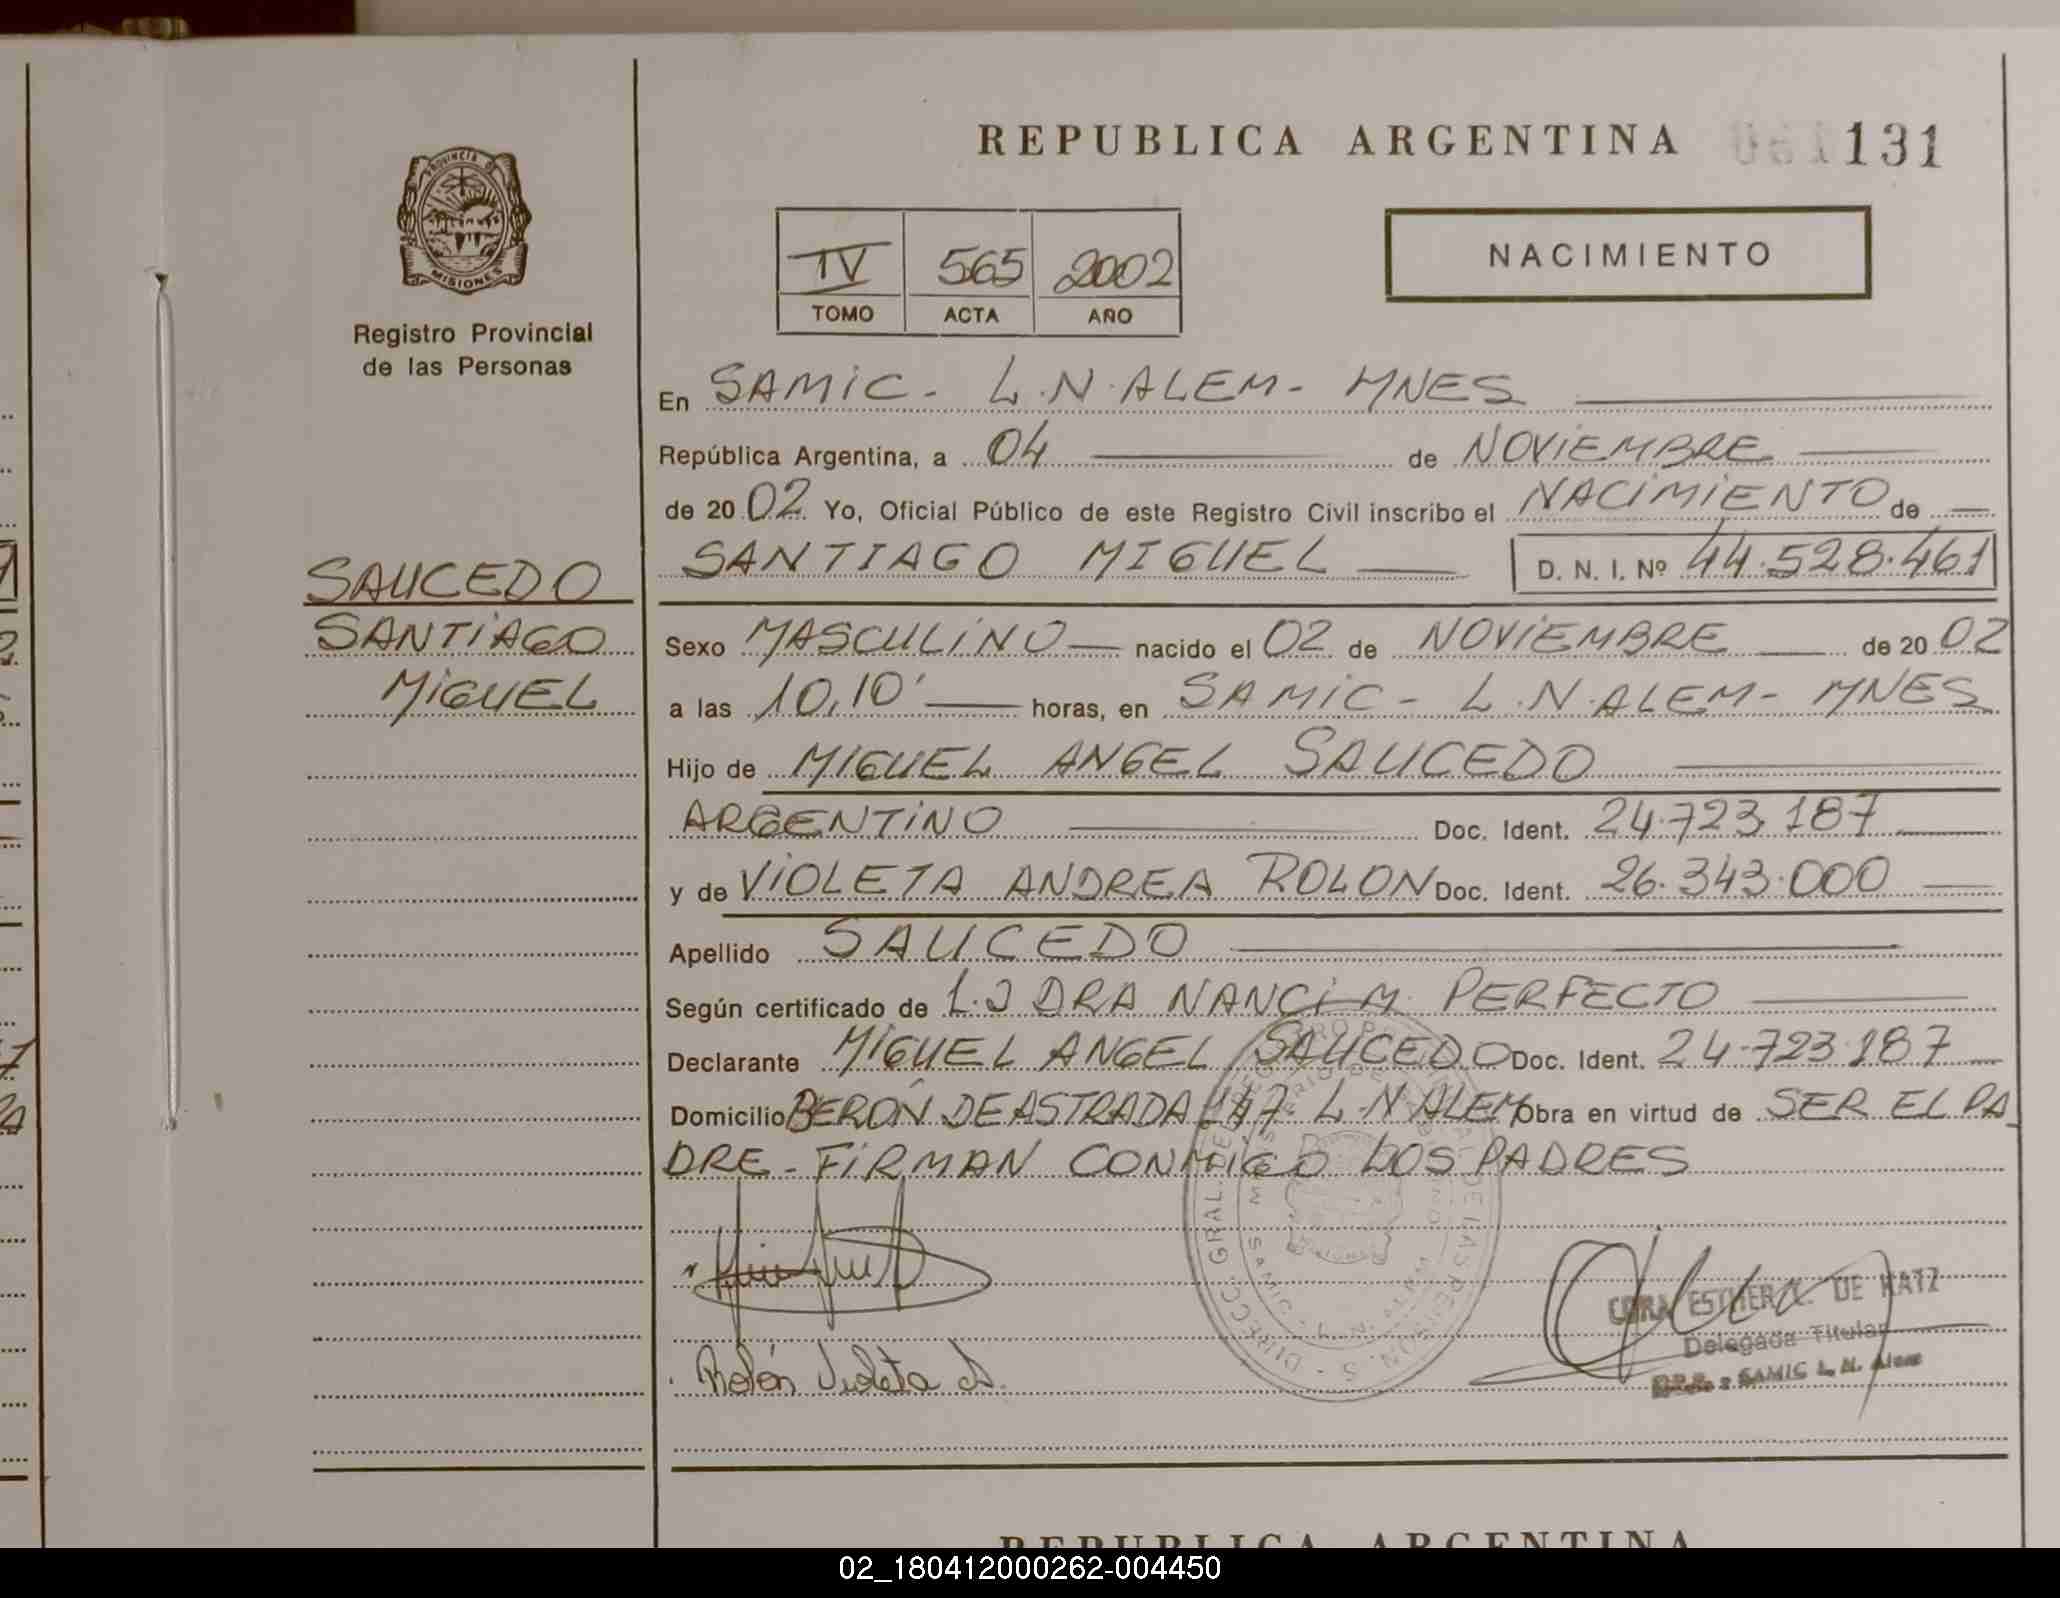 REPUBLICA ARGENTINA 131
PROVINCIA DE MISIONES
Registro Provincial
de las Personas
NACIMIENTO
IV 565 2002
TOMO ACTA AÑO
En SAMIC - L.N. ALEM - MNES
República Argentina, a 04 de NOVIEMBRE
de 2002 Yo, Oficial Público de este Registro Civil inscribo el NACIMIENTO de
SANTIAGO MIGUEL D. N. I. Nº 44.528.461
SAUCEDO
SANTIAGO
MIGUEL
Sexo MASCULINO nacido el 02 de NOVIEMBRE de 2002
a las 10,10' horas, en SAMIC - L.N. ALEM - MNES
Hijo de MIGUEL ANGEL SAUCEDO
ARGENTINO Doc. Ident. 24.723.187
y de VIOLETA ANDREA ROLON Doc. Ident. 26.343.000
Apellido SAUCEDO
Según certificado de DRA NANCI M. PERFECTO
Declarante MIGUEL ANGEL SAUCEDO Doc. Ident. 24.723.187
Domicilio BERÓN DE ASTRADA 147 L.N ALEM Obra en virtud de SER EL PA
DRE - FIRMAN CONMIGO LOS PADRES
Rolón Violeta A.
ESTHER DE KATZ
Delegada Titular
SAMIC L. N. Alem
REPUBLICA ARGENTINA
02_180412000262-004450